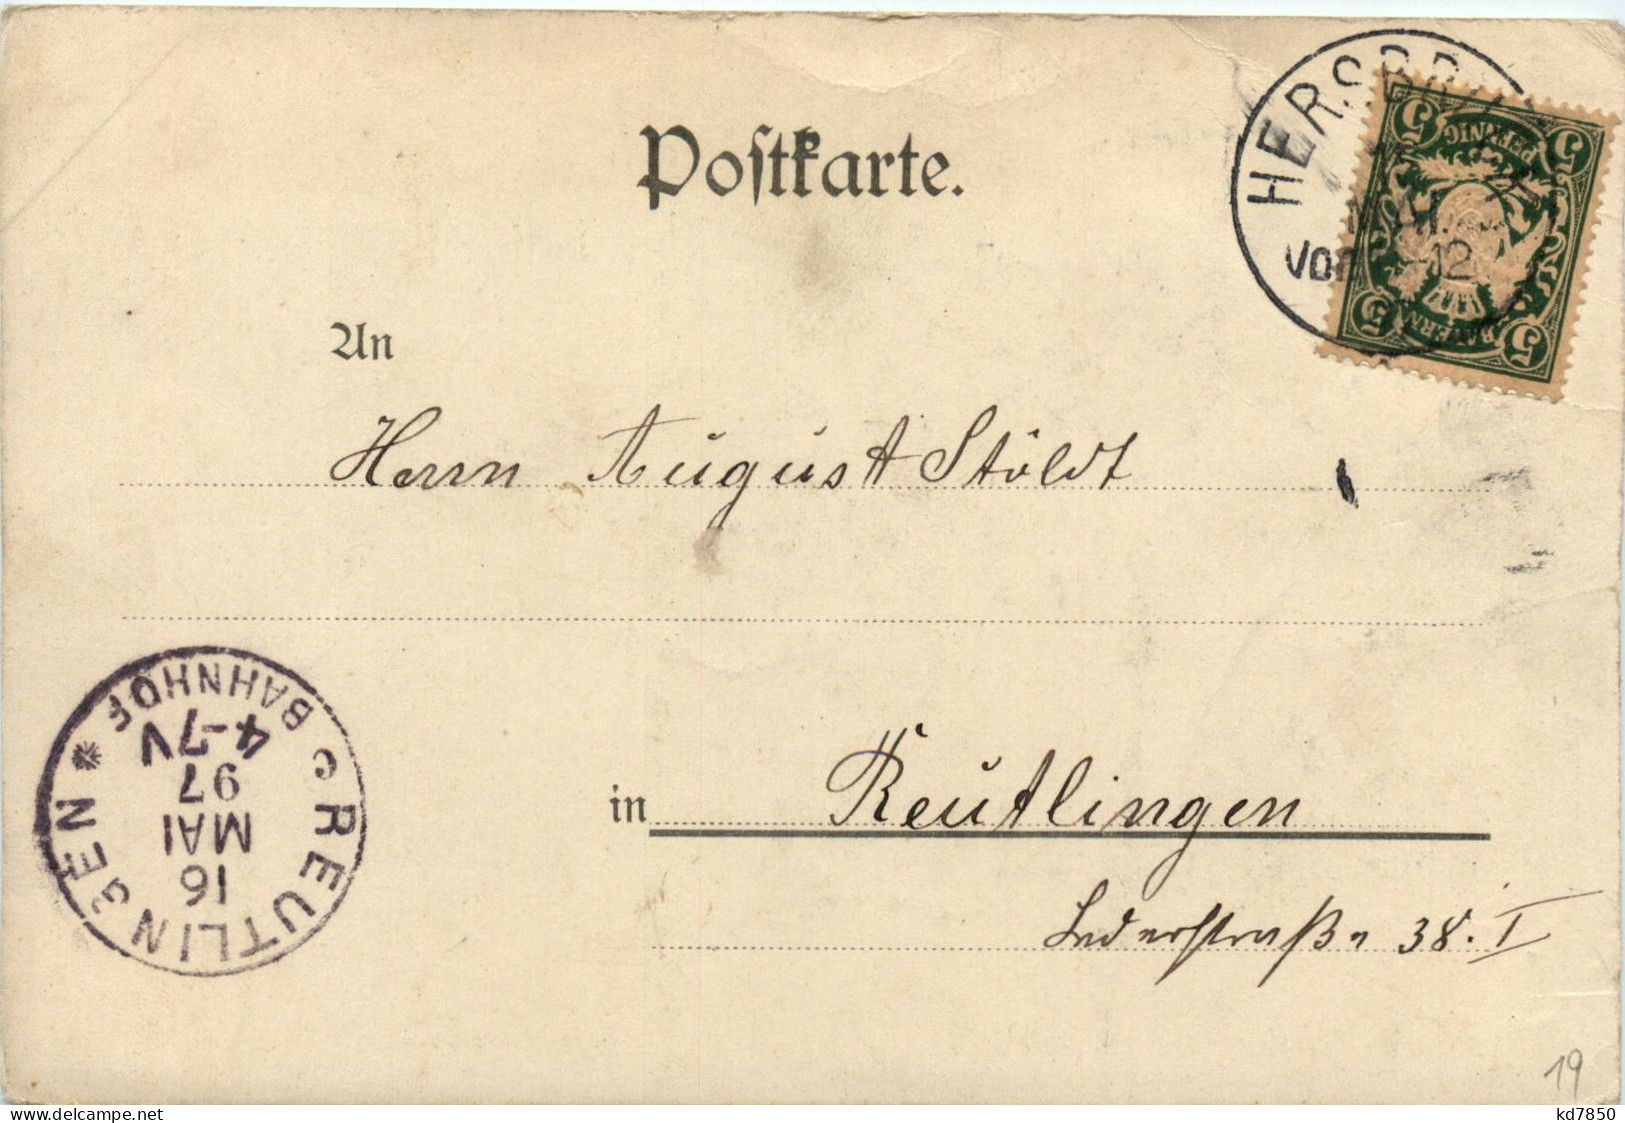 Postkarte.
HERSBRUCK
MAI.
Vor -12
5 PFENNIG 5
5 BAYERN 5
An
Herrn August Stöldt
in Reutlingen
Lederstraße 38. I
REUTLINGEN
16
MAI
97
4-7V
BAHNHOF
19
www.delcampe.net
kd7850